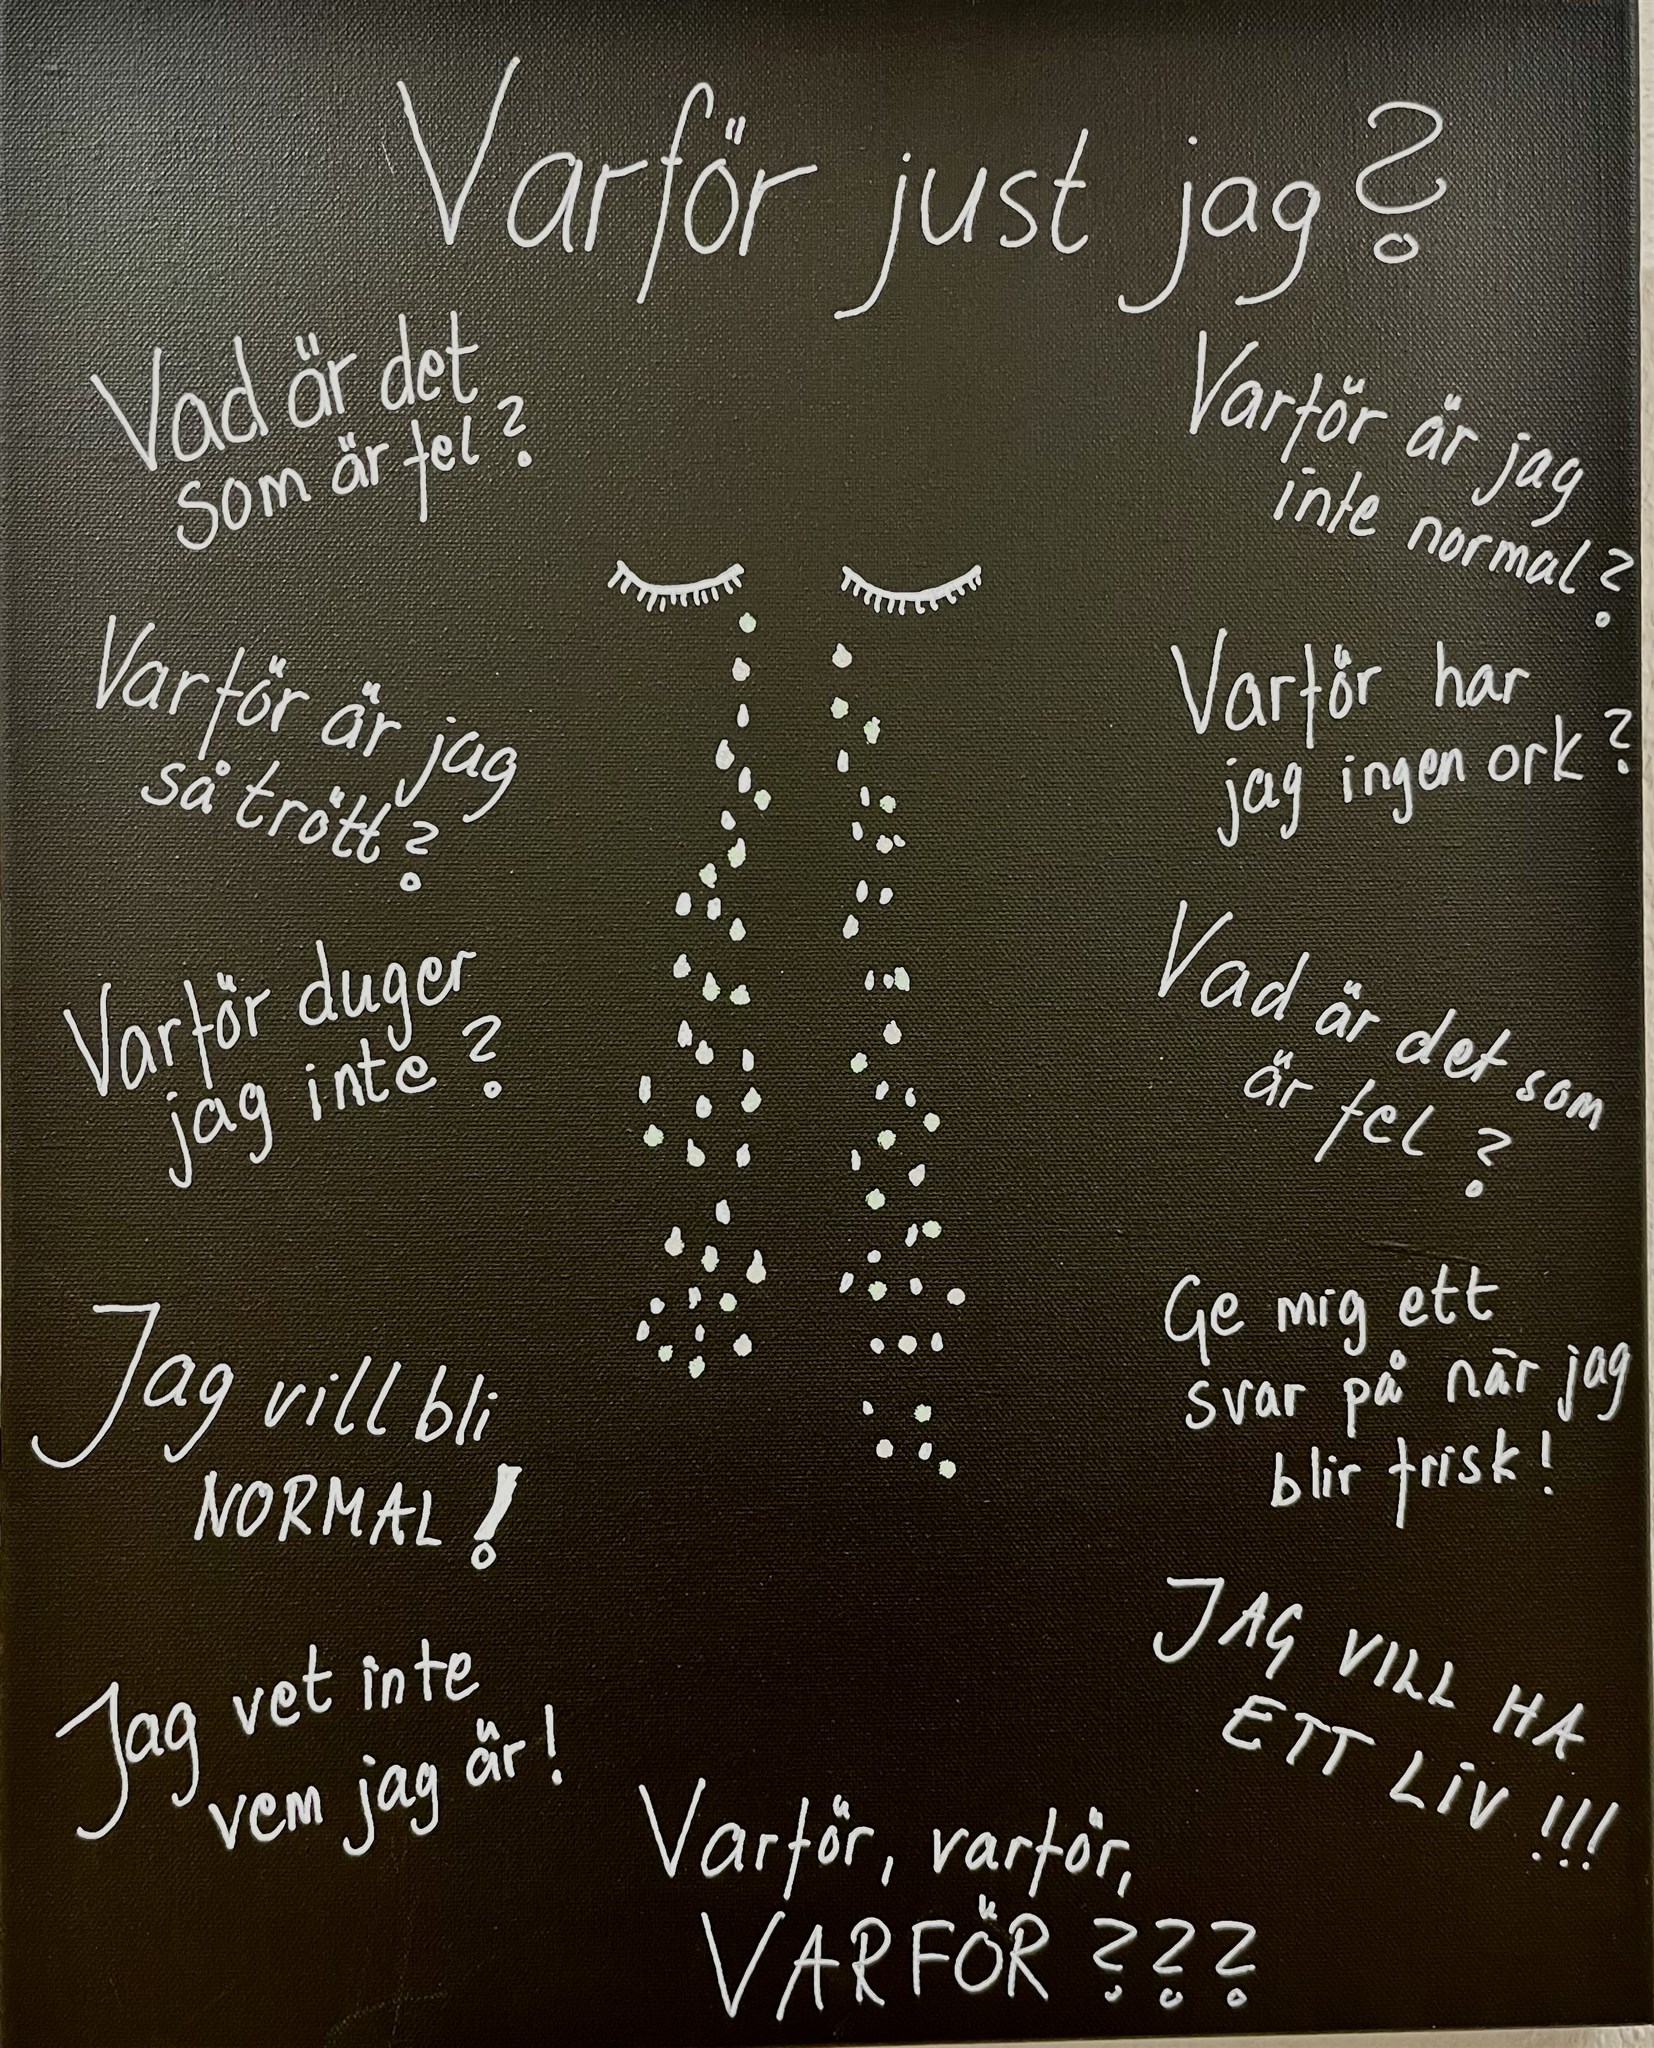 Varför just jag?
Vad är det
som är fel?
Varför är jag
inte normal?
Varför är jag
så trött?
Varför har
jag ingen ork?
Varför duger
jag inte?
Vad är det som
är fel?
Jag vill bli
NORMAL!
Ge mig ett
svar på när jag
blir frisk!
Jag vet inte
vem jag är!
JAG VILL HA
ETT LIV !!!
Varför, varför,
VARFÖR???